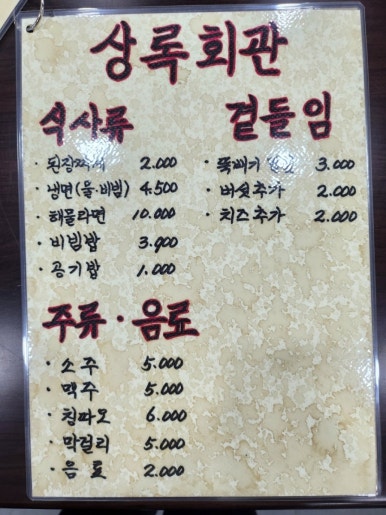 상록회관
식사류
· 된장찌개 2.000
· 냉면(물·비빔) 4.500
· 해물라면 10.000
· 비빔밥 3.900
· 공기밥 1.000
곁들임
· 뚝빼기 3.000
· 버섯추가 2.000
· 치즈추가 2.000
주류·음료
· 소주 5.000
· 맥주 5.000
· 청파오 6.000
· 막걸리 5.000
· 음료 2.000